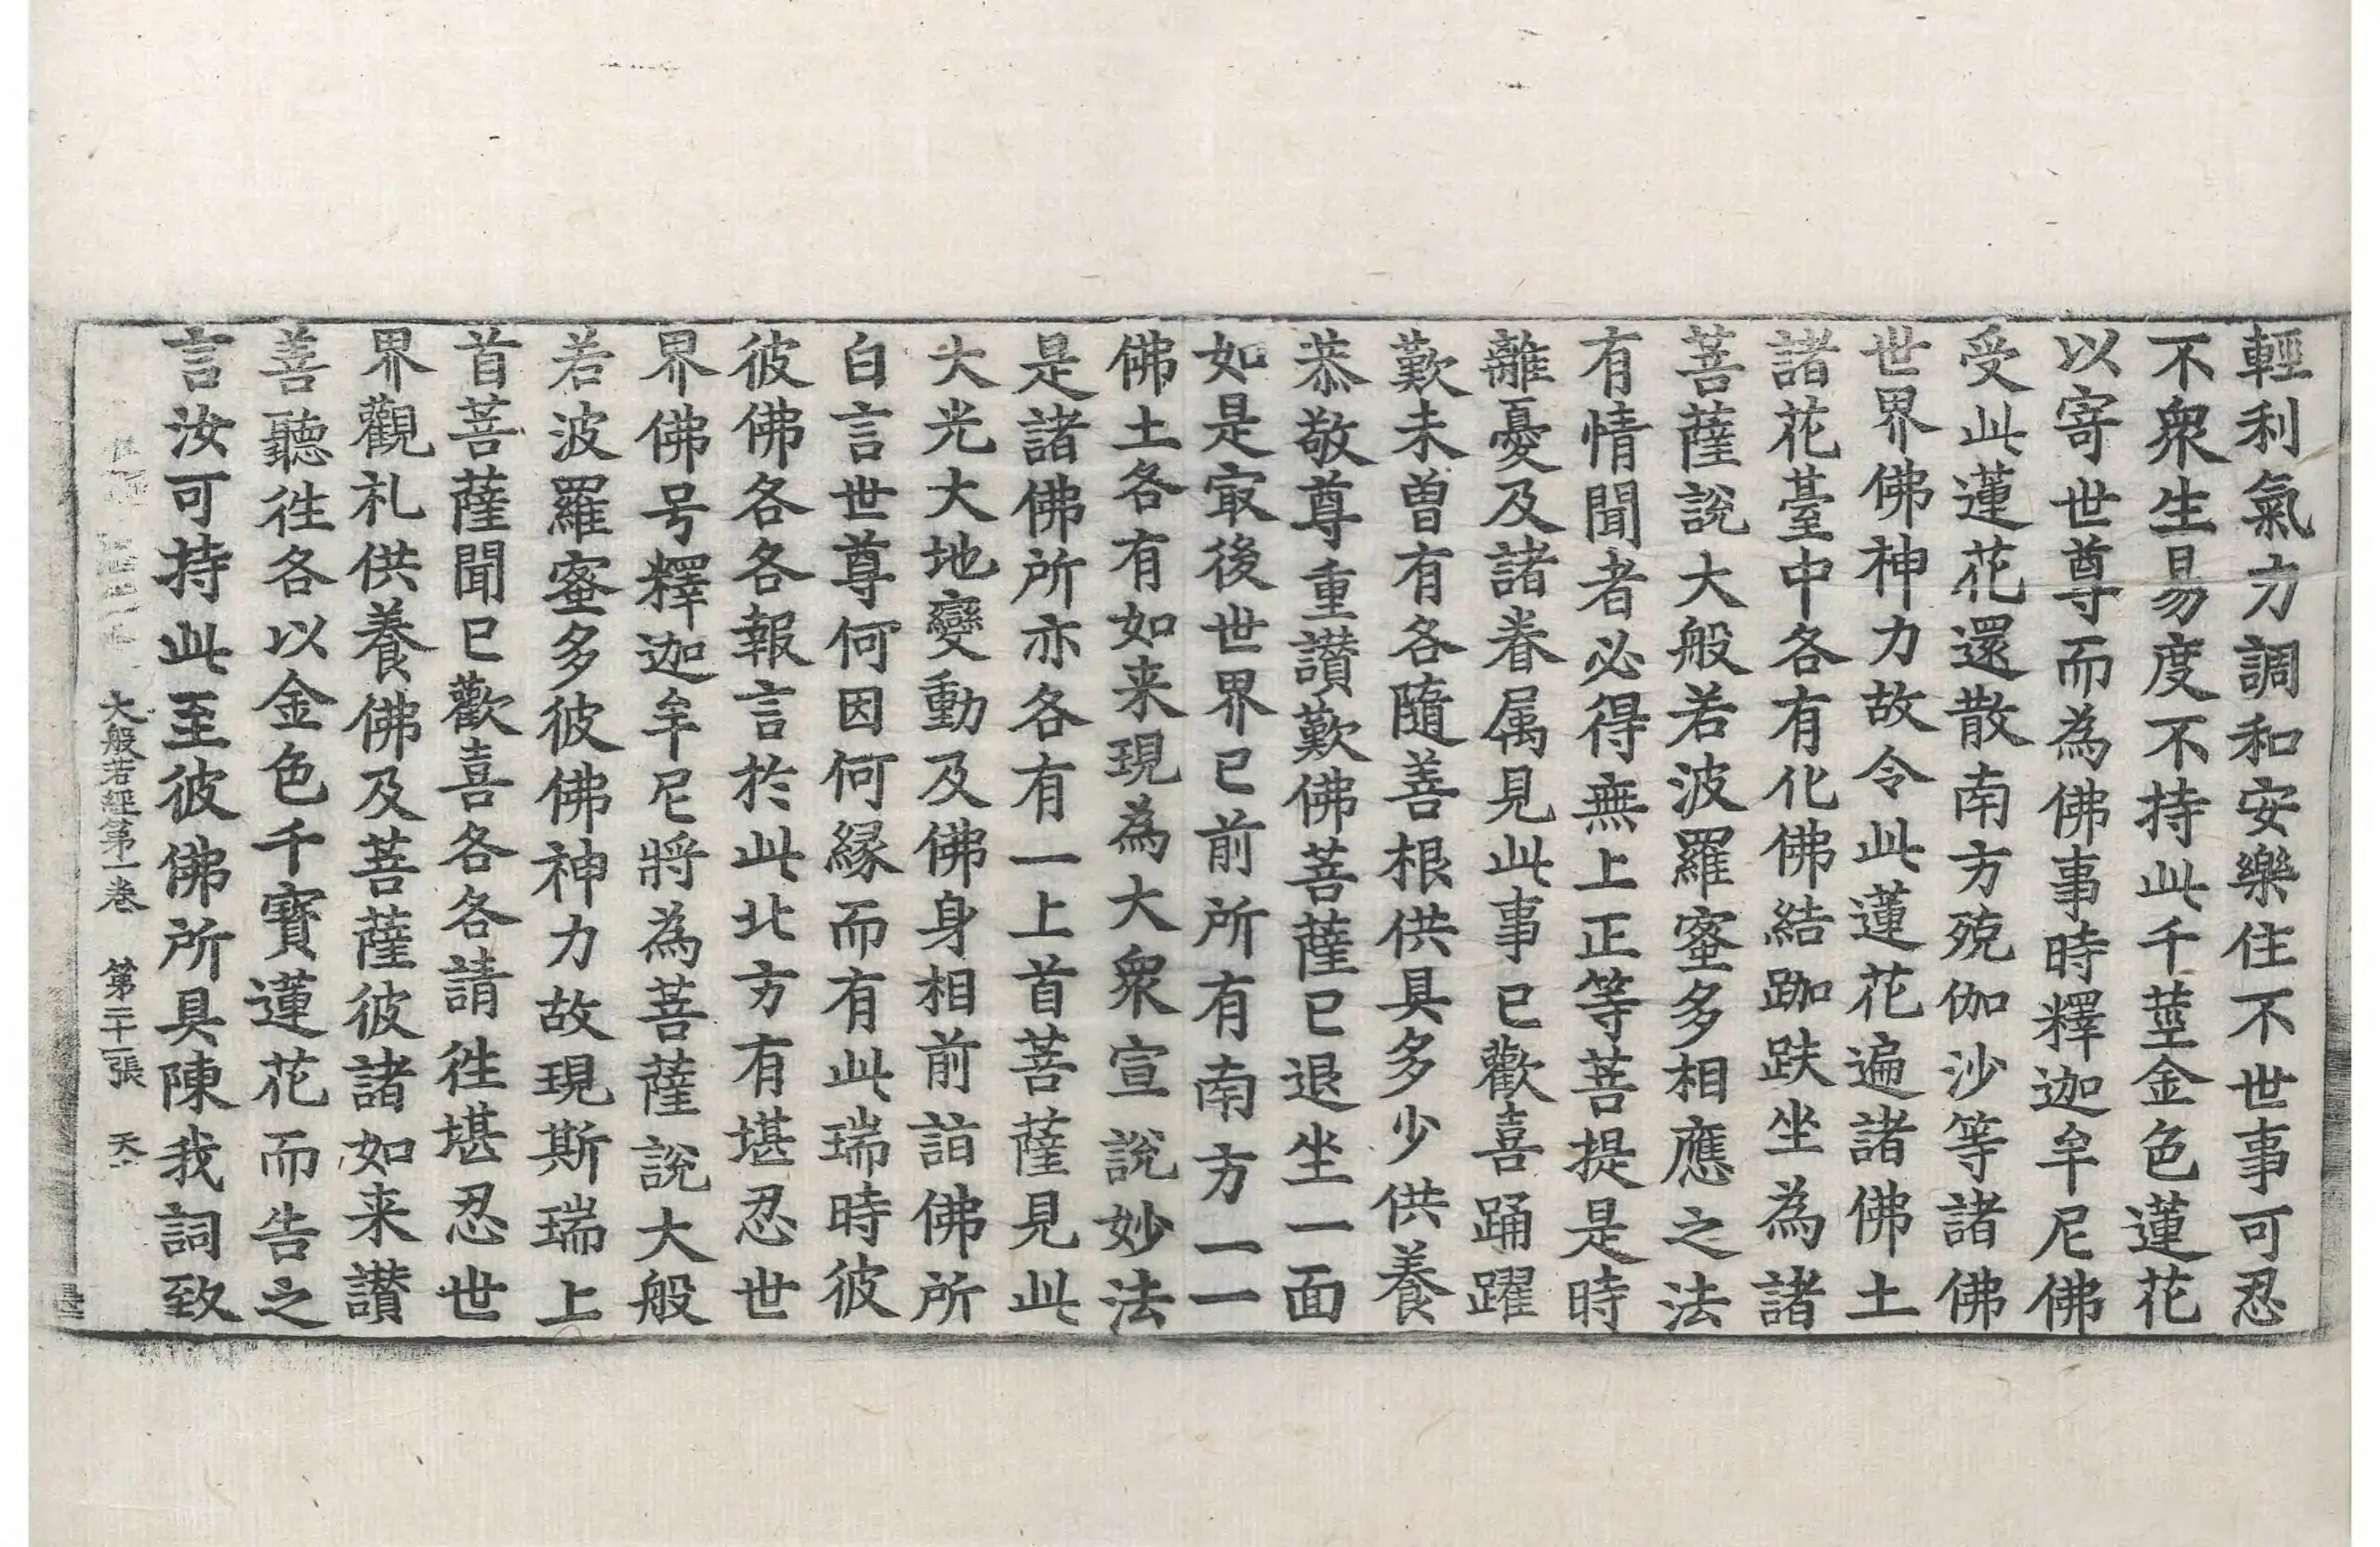 輕利氣力調和安樂住不世事可忍
不衆生易度不持此千莖金色蓮花
以寄世尊而為佛事時釋迦牟尼佛
受此蓮花還散南方殑伽沙等諸佛
世界佛神力故令此蓮花遍諸佛土
諸花臺中各有化佛結跏趺坐為諸
菩薩說大般若波羅蜜多相應之法
有情聞者必得無上正等菩提是時
離憂及諸眷属見此事已歡喜踊躍
歎未曾有各隨善根供具多少供養
恭敬尊重讃歎佛菩薩已退坐一面
如是㝡後世界已前所有南方一一
佛土各有如来現為大衆宣說妙法
是諸佛所亦各有一上首菩薩見此
大光大地變動及佛身相前詣佛所
白言世尊何因何縁而有此瑞時彼
彼佛各各報言於此北方有堪忍世
界佛号釋迦牟尼將為菩薩說大般
若波羅蜜多彼佛神力故現斯瑞上
首菩薩聞已歡喜各各請徃堪忍世
界觀礼供養佛及菩薩彼諸如来讃
善聽徃各以金色千寳蓮花而告之
言汝可持此至彼佛所具陳我詞致
大般若經第一卷 第二十一張 天